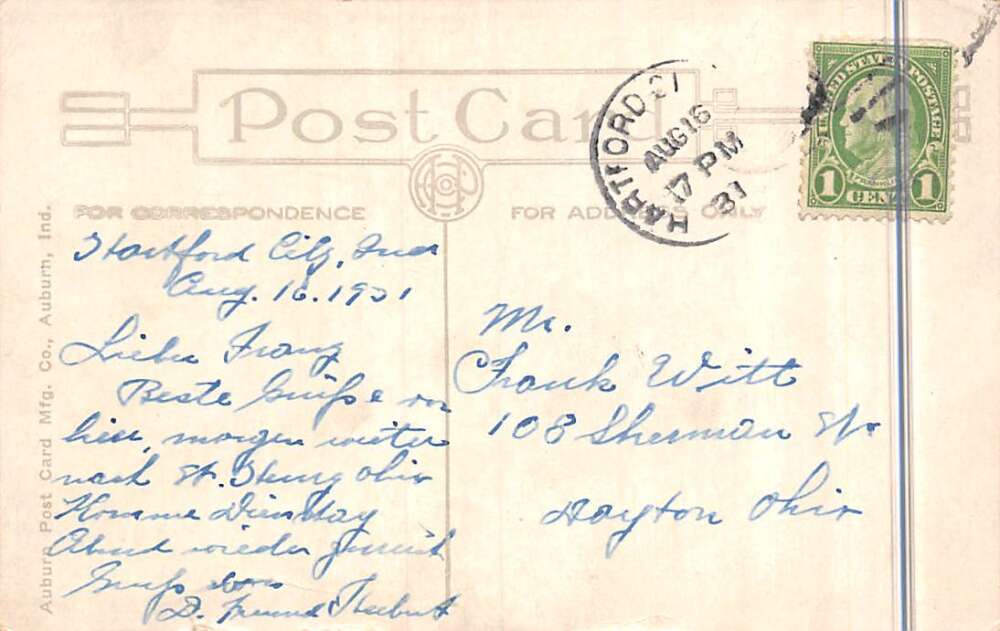 Post Card
FOR CORRESPONDENCE
FOR ADDRESS ONLY
HARTFORD
AUG 16
17 PM
31
UNITED STATES POSTAGE
FRANKLIN
1 CENT 1
Auburn Post Card Mfg. Co., Auburn, Ind.
Hartford City, Ind
Aug. 16. 1931
Lieber Franz
Beste Grüße von
hier, morgen weiter
nach St. Henry Ohio
Komme Dienstag
Abend wieder zurück
Gruß
D. Freund
Mr.
Frank Witt
108 Sherman St
Dayton Ohio